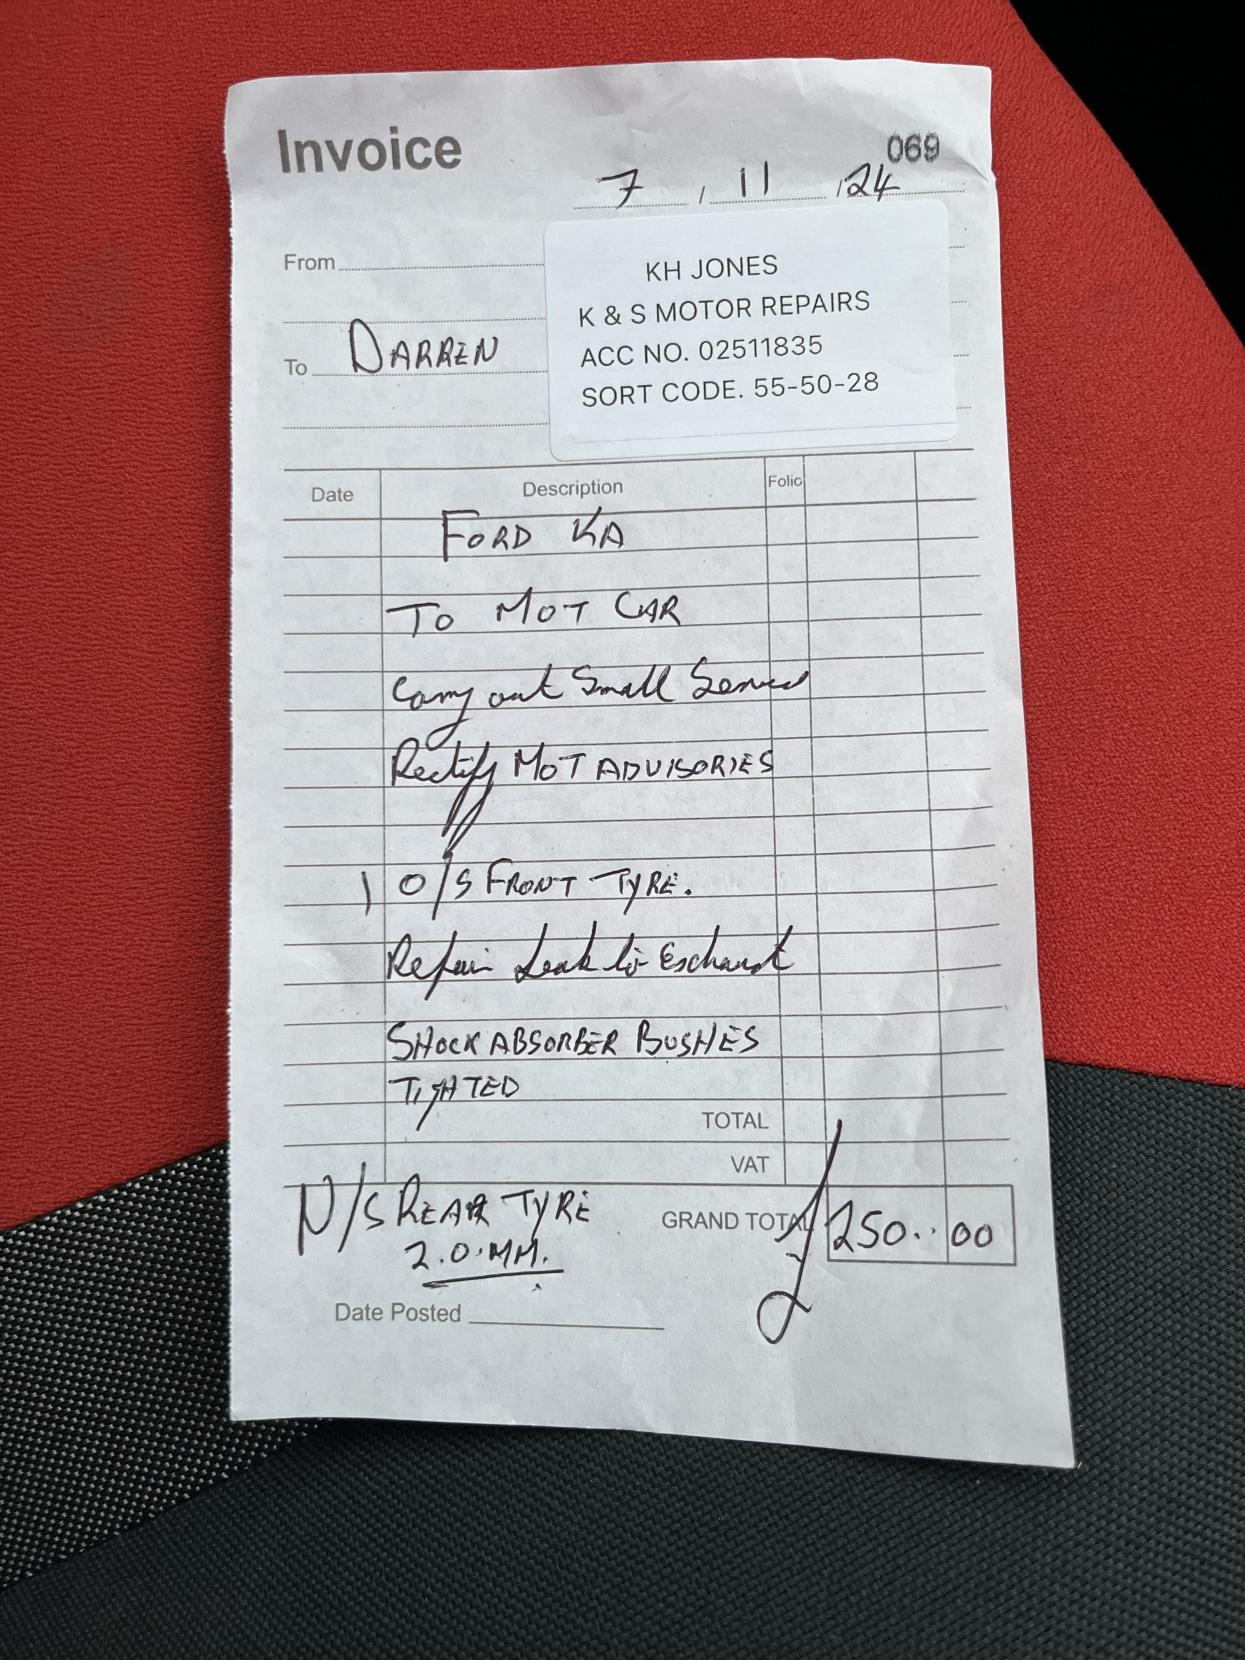 Invoice
069
7 / 11 / 24
From
KH JONES
K & S MOTOR REPAIRS
ACC NO. 02511835
SORT CODE. 55-50-28
To DARREN
Date Description Folio
FORD KA
TO MOT CAR
Carry out Small Service
Rectify MOT ADVISORIES
1 O/S FRONT TYRE.
Repair Leak to Exhaust
SHOCK ABSORBER BUSHES
TIGHTED
TOTAL
VAT
N/S REAR TYRE
2.0.MM.
GRAND TOTAL £ 250..00
Date Posted